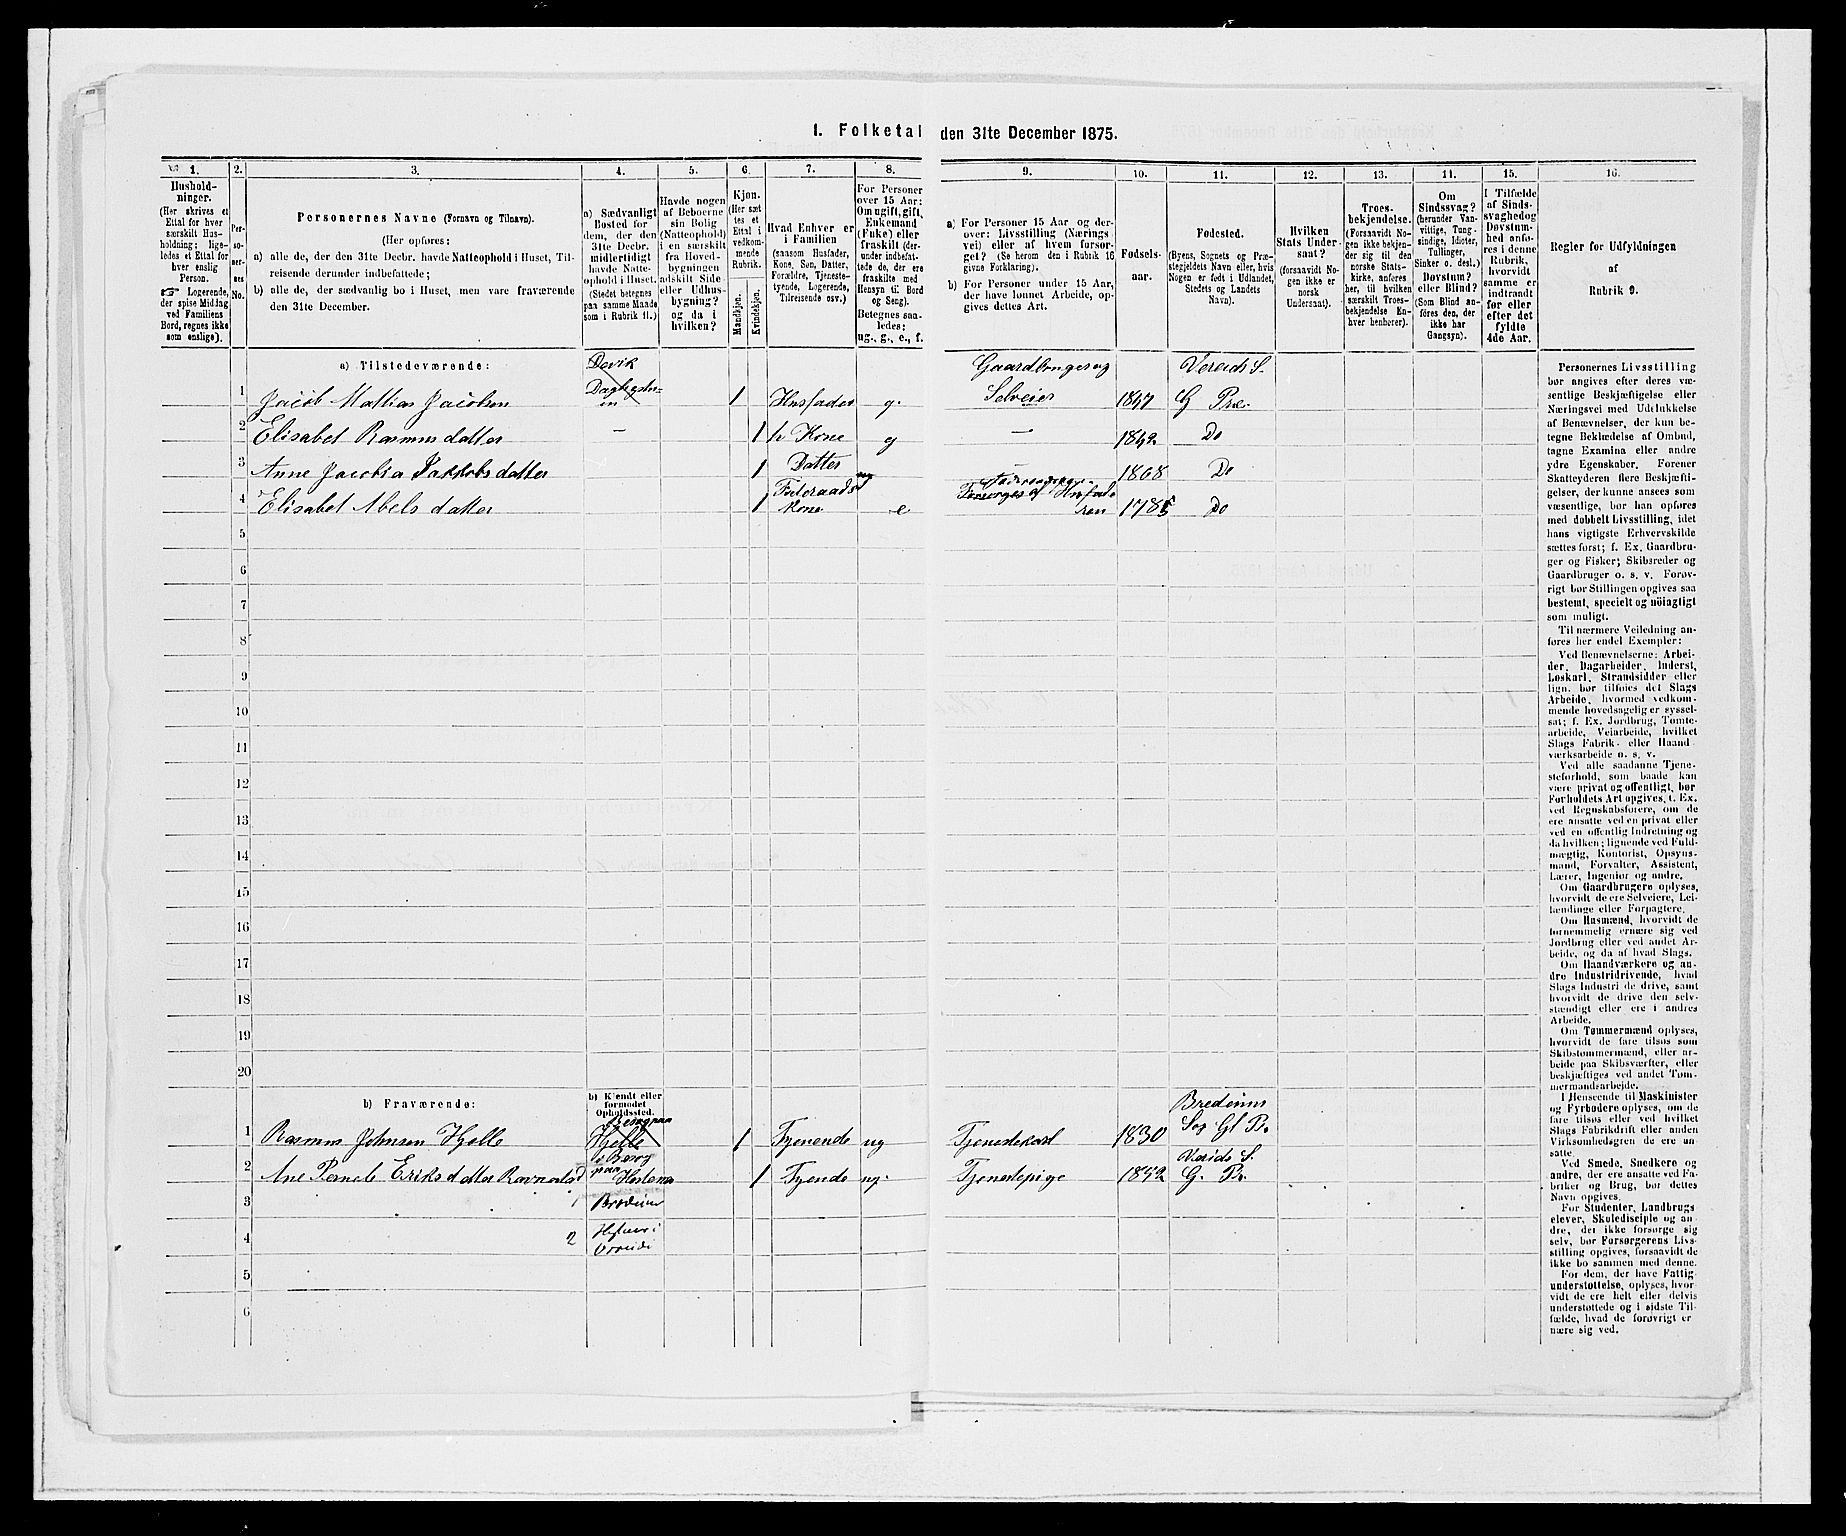 I. Folketal den 31te December 1875.
1. 2. 3. 4. 5. 6. 7. 8. 9. 10. 11. 12. 13. 14. 15. 16.
Hushold-
ninger.
(Her skrives et
Ettal for hver
særskilt Hus-
holdning; lige-
ledes et Ettal for
hver enslig
Person.
☞ Logerende,
der spise Middag
ved Familiens
Bord, regnes ikke
som enslige).
Per-
so-
ner-
nes
No.
Personernes Navne (Fornavn og Tilnavn).
(Her opføres:
a) alle de, der den 31te Decbr. havde Natteophold i Huset, Til-
reisende derunder indbefattede;
b) alle de, der sædvanlig bo i Huset, men vare fraværende
den 31te December.
a) Sædvanligt
Bosted for
dem, der den
31te Decbr.
midlertidigt
havde Natte-
ophold i Huset.
(Stedet betegnes
paa samme Maade
som i Rubrik 11.)
Havde nogen
af Beboerne
sin Bolig
(Natteophold)
i en særskilt
fra Hoved-
bygningen
adskilt Side-
eller Udhus-
bygning?
og da i
hvilken?
Kjøn.
(Her sæt-
tes et
Ettal i
vedkom-
mende
Rubrik.
Mandkjøn.
Kvindekjøn.
Hvad Enhver er
i Familien
(saasom Husfader,
Kone, Søn, Datter,
Forældre, Tjeneste-
tyende, Logerende,
Tilreisende osv.)
For Personer
over 15 Aar:
Om ugift, gift,
Enkemand
(Enke) eller
fraskilt (der-
under indbefat-
tede de, der ere
fraskilte med
Hensyn til Bord
og Seng).
Betegnes saa-
ledes:
ug., g., e., f.
a) For Personer 15 Aar og der-
over: Livsstilling (Nærings-
vei) eller af hvem forsør-
get? (Se herom den i Rubrik 16
givne Forklaring).
b) For Personer under 15 Aar,
der have lønnet Arbeide, op-
gives dettes Art.
Fødsels-
aar.
Fødested.
(Byens, Sognets og Præ-
stegjeldets Navn eller, hvis
Nogen er født i Udlandet,
Stedets og Landets
Navn).
Hvilken
Stats Under-
saat?
(forsaavidt No-
gen ikke er
norsk
Undersaat).
Troes-
bekjendelse.
(Forsaavidt No-
gen ikke bekjen-
der sig til den
norske Stats-
kirke, anføres
her, til hvilken
særskilt Troes-
bekjendelse En-
hver henhører).
Om
Sindssvag?
(herunder Van-
vittige, Tung-
sindige, Idioter,
Tullinger,
Sinker o. desl.)
Døvstum?
eller Blind?
(Som Blind an-
føres den, der
ikke har
Gangsyn).
I Tilfælde
af Sinds-
svaghed og
Døvstum-
hed anfø-
res i denne
Rubrik,
hvorvidt
samme er
indtraadt
før eller
efter det
fyldte
4de Aar.
Regler for Udfyldningen
af
Rubrik 9.
a) Tilstedeværende:
Davik
Gaardbruger og Vereids S.
1 Jacob Mathias Jacobsen 1 Husfader g. Selveier 1847 G Pre.
2 Elisabet Rasmusdatter - 1 h Kone g - 1842 Do
3 Anne Jacobia Jakkobsdatter 1 Datter - 1868 Do
4 Elisabet Abelsdatter 1 Føderaads Kone e Forsørges af Husfaderen 1785 Do
5
6
7
8
9
10
11
12
13
14
15
16
17
18
19
20
b) Fraværende:
b) Kjendt eller
formodet
Opholdssted.
Besøg paa
Bredeims
1 Rasmus Johnsen Hjelle Hjelle 1 Tjenende ug Tjenestekarl 1830 Sog Gl Pr.
i Besøg
Vereids S.
2 Ane Pernele Eriksdatter Ravnestad paa Hestenes 1 Tjende ug. Tjenestepige 1852 G. Pr.
3 1 Bredeim
4 2 Hestenes i
Vereide
5
6
Personernes Livsstilling
bør angives efter deres væ-
sentlige Beskjæftigelse eller
Næringsvei med Udelukkelse
af Benævnelser, der kun be-
tegne Beklædelse af Ombud,
tagne Examina eller andre
ydre Egenskaber. Forener
Skatteyderen flere Beskjæfti-
gelser, der kunne ansees som
væsentlige, bør han opføres
med dobbelt Livsstilling, idet
hans vigtigste Erhvervskilde
sættes først; f. Ex. Gaardbru-
ger og Fisker; Skibsreder og
Gaardbruger o. s. v. Forøv-
rigt bør Stillingen opgives saa
bestemt, specielt og nøiagtigt
som muligt.
Til nærmere Veiledning an-
føres her endel Exempler:
Ved Benævnelserne: Arbei-
der, Dagarbeider, Inderst,
Løskarl, Strandsidder eller
lign. bør tilføies det Slags
Arbeide, hvormed vedkom-
mende hovedsagelig er syssel-
sat; f. Ex. Jordbrug, Tomte-
arbeide, Veiarbeide, hvilket
Slags Fabrik- eller Haand-
værksarbeide o. s. v.
Ved alle saadanne Tjene-
steforhold, som baade kan
være privat og offentligt, bør
Forholdets Art opgives, t. Ex.
ved Regnskabsførere, om de
ere ansatte ved en privat eller
ved en offentlig Indretning og
da hvilken; lignende ved Fuld-
mægtig, Kontorist, Opsyns-
mand, Forvalter, Assistent,
Lærer, Ingeniør og andre.
Om Gaardbrugere oplyses,
hvorvidt de ere Selveiere, Lei-
lændinge eller Forpagtere.
Om Husmænd, hvorvidt de
fornemmelig ernære sig ved
Jordbrug eller ved andet Ar-
beide, og da af hvad Slags.
Om Haandværkere og an-
dre Industridrivende, hvad
Slags Industri de drive, samt
hvorvidt de drive den selv-
stændigt eller ere i andres
Arbeide.
Om Tømmermænd oplyses,
hvorvidt de fare tilsøs som
Skibstømmermænd, eller ar-
beide paa Skibsværfter, eller
beskjæftiges ved andet Tøm-
mermandsarbeide.
I Henseende til Maskinister
og Fyrbødere oplyses, om de
fare tilsøs eller ved hvilket
Slags Fabrikdrift eller anden
Virksomhedsgren de ere an-
satte.
Ved Smede, Snedkere og
andre, der ere ansatte ved Fa-
briker og Brug, bør dettes
Navn opgives.
For Studenter, Landbrugs-
elever, Skoledisciple og an-
dre, der ikke forsørge sig
selv, bør Forsørgerens Livs-
stilling opgives, forsaavidt de
ikke bo sammen med denne.
For dem, der have Fattig-
understøttelse, oplyses, hvor-
vidt de ere helt eller delvis
understøttede og i sidste Til-
fælde, hvad de forøvrigt er-
nære sig ved.